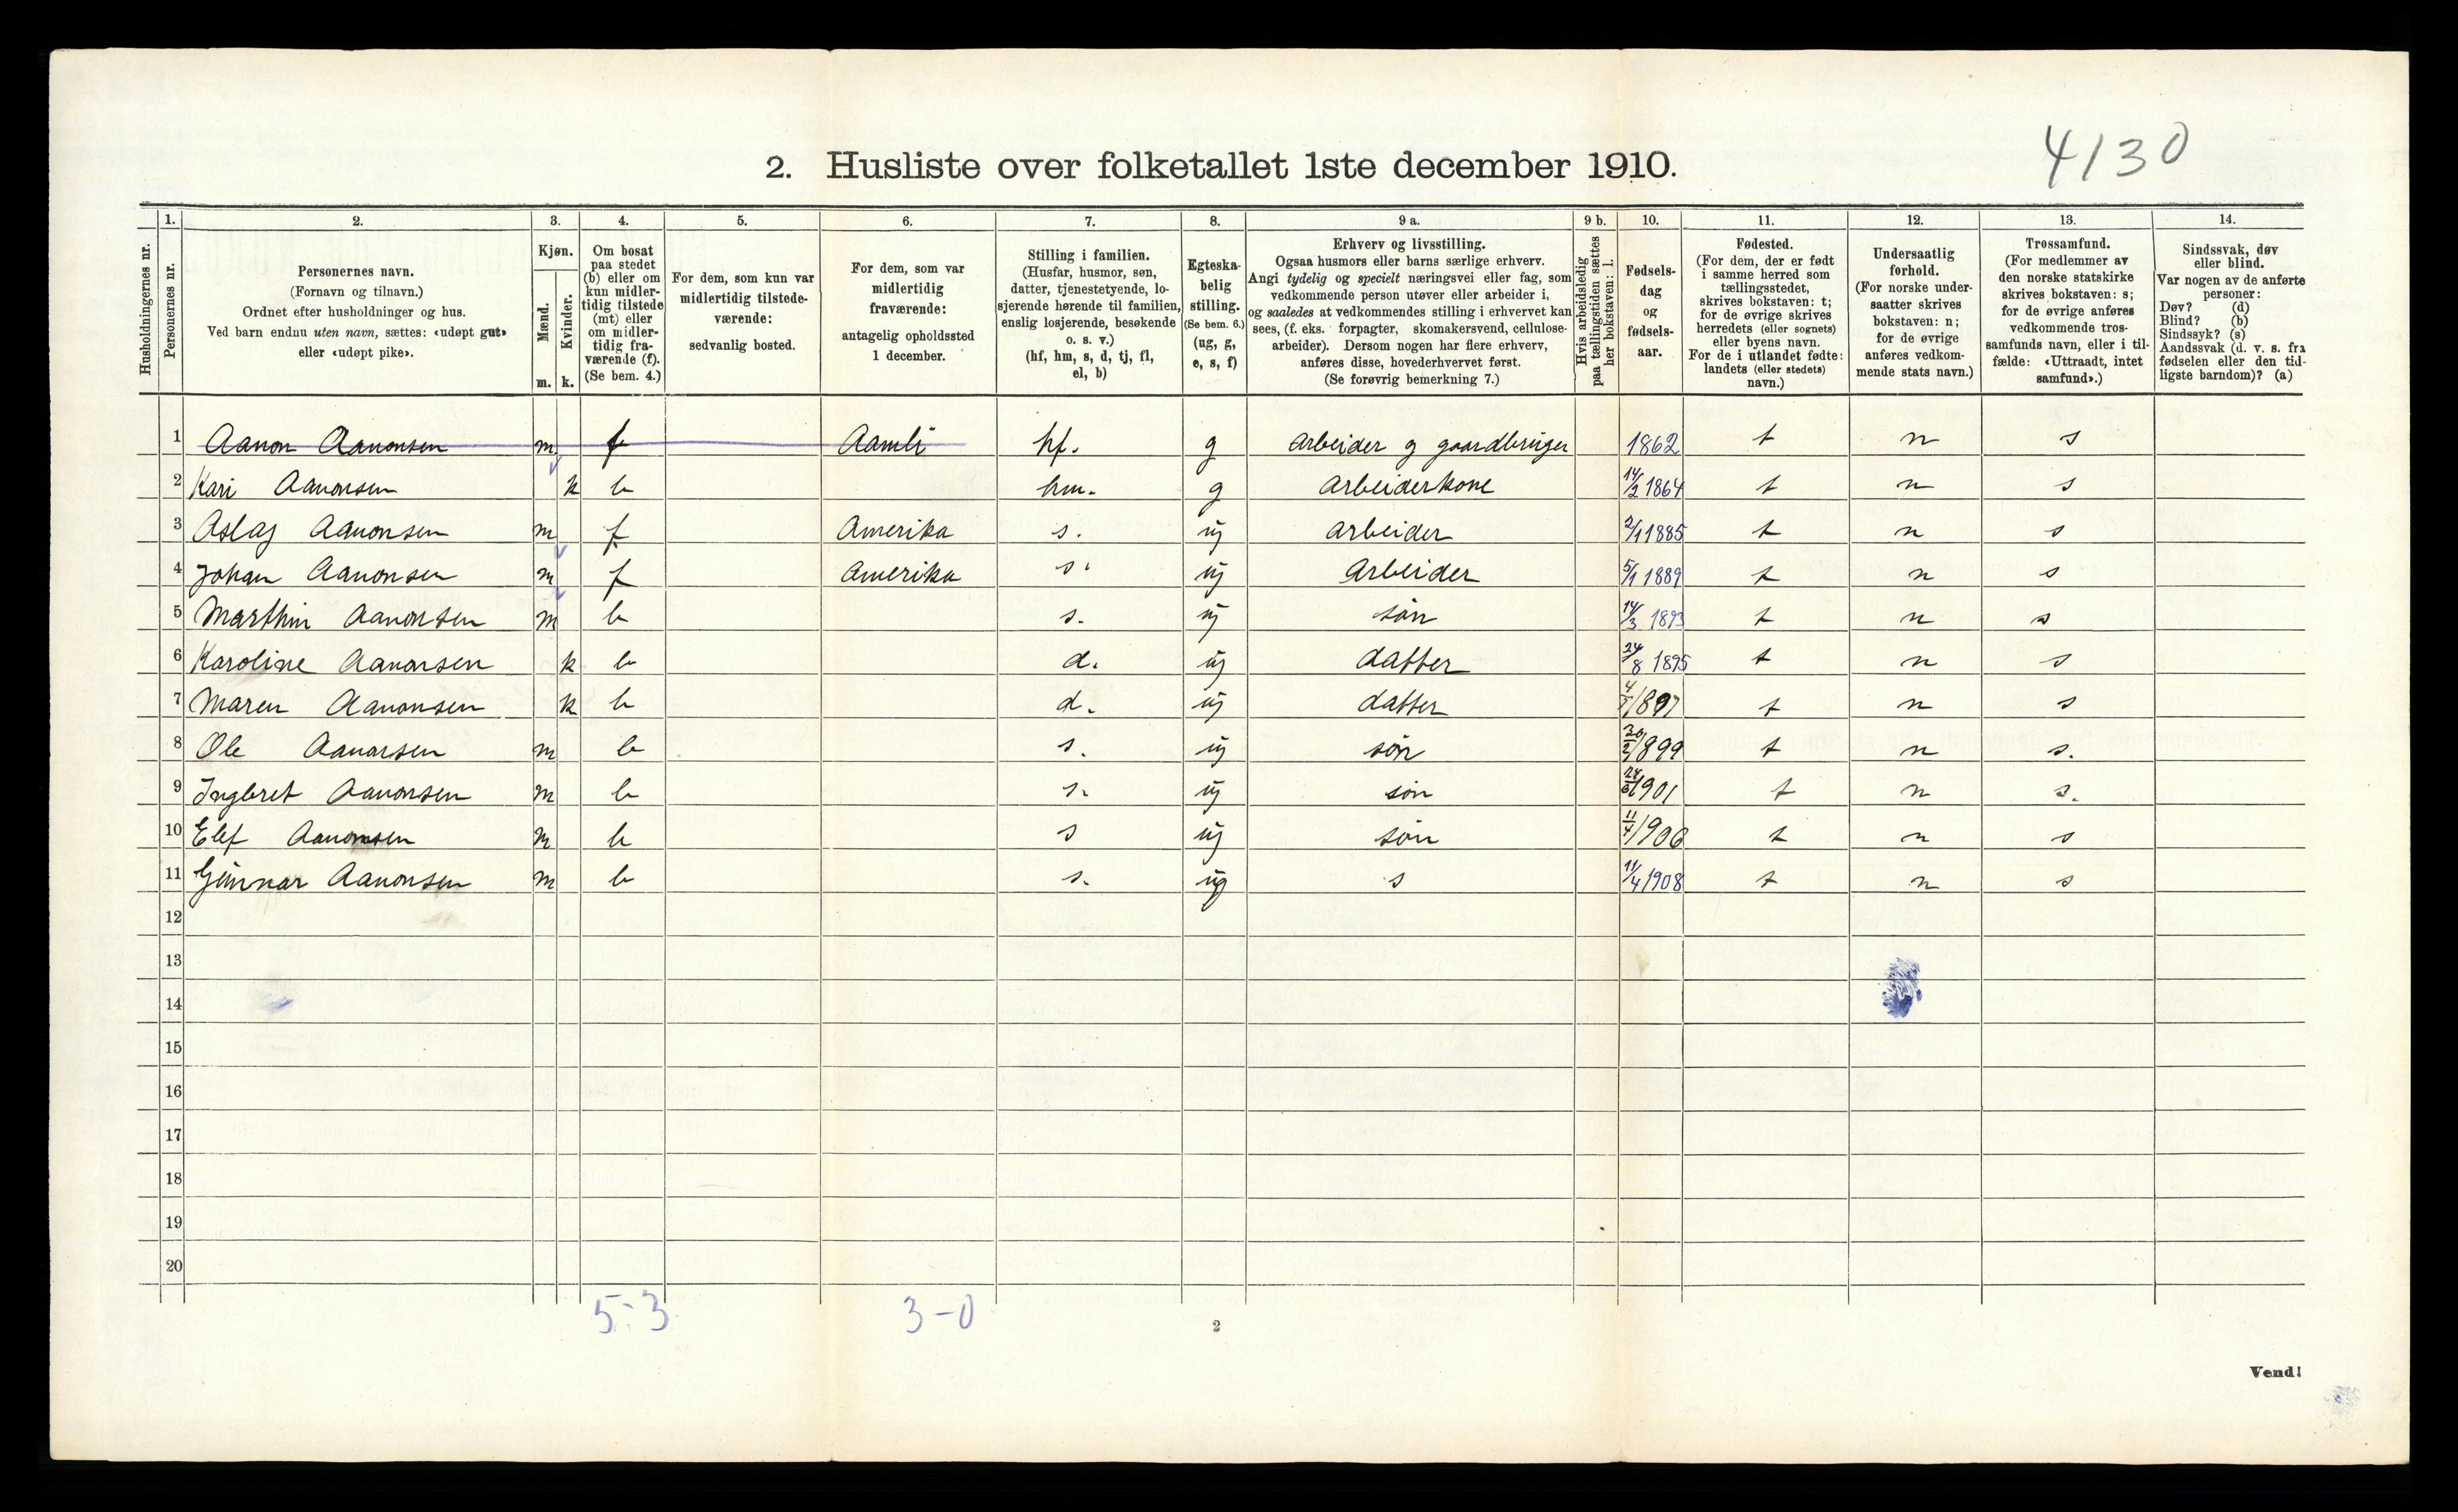 4130
2. Husliste over folketallet 1ste december 1910.
Husholdningernes nr.
1. Personernes nr.
2. Personernes navn. (Fornavn og tilnavn.) Ordnet efter husholdninger og hus. Ved barn endnu uten navn, sættes: «udøpt gut» eller «udøpt pike».
3. Kjøn. Mænd. m. Kvinder. k.
4. Om bosat paa stedet (b) eller om kun midlertidig tilstede (mt) eller om midlertidig fraværende (f). (Se bem. 4.)
5. For dem, som kun var midlertidig tilstedeværende: sedvanlig bosted.
6. For dem, som var midlertidig fraværende: antagelig opholdssted 1 december.
7. Stilling i familien. (Husfar, husmor, søn, datter, tjenestetyende, losjerende hørende til familien, enslig losjerende, besøkende o. s. v.) (hf, hm, s, d, tj, fl, el, b)
8. Egteskabelig stilling. (Se bem. 6.) (ug, g, e, s, f)
9 a. Erhverv og livsstilling. Ogsaa husmors eller barns særlige erhverv. Angi tydelig og specielt næringsvei eller fag, som vedkommende person utøver eller arbeider i, og saaledes at vedkommendes stilling i erhvervet kan sees, (f. eks. forpagter, skomakersvend, cellulosearbeider). Dersom nogen har flere erhverv, anføres disse, hovederhvervet først. (Se forøvrig bemerkning 7.)
9 b. Hvis arbeidsledig paa tællingstiden sættes her bokstaven: l.
10. Fødselsdag og fødselsaar.
11. Fødested. (For dem, der er født i samme herred som tællingsstedet, skrives bokstaven: t; for de øvrige skrives herredets (eller sognets) eller byens navn. For de i utlandet fødte: landets (eller stedets) navn.)
12. Undersaatlig forhold. (For norske undersaatter skrives bokstaven: n; for de øvrige anføres vedkommende stats navn.)
13. Trossamfund. (For medlemmer av den norske statskirke skrives bokstaven: s; for de øvrige anføres vedkommende trossamfunds navn, eller i tilfælde: «Uttraadt, intet samfund».)
14. Sindssvak, døv eller blind. Var nogen av de anførte personer: Døv? (d) Blind? (b) Sindssyk? (s) Aandssvak (d. v. s. fra fødselen eller den tidligste barndom)? (a)
1 Aanon Aanonsen m f Aamli hf. g arbeider g gaardbruger 1862 t n s
2 Kari Aanonsen k b hm. g arbeiderkone 14/2 1864 t n s
3 Aslag Aanonsen m f Amerika s. ug arbeider 2/1 1885 t n s
4 Johan Aanonsen m f Amerika s. ug arbeider 5/1 1889 t n s
5 Marthin Aanonsen m b s. ug søn 14/3 1893 t n s
6 Karoline Aanonsen k b d. ug datter 24/8 1895 t n s
7 Maren Aanonsen k b d. ug datter 1897 t n s
8 Ole Aanonsen m b s. ug søn 20/2 1899 t n s.
9 Ingbret Aanonsen m b s. ug søn 1901 t n s.
10 Elef Aanonsen m b s ug søn 11/4 1906 t n s
11 Gunnar Aanonsen m b s. ug s 11/4 1908 t n s
12
13
14
15
16
17
18
19
20
5-3 3-0
2
Vend!